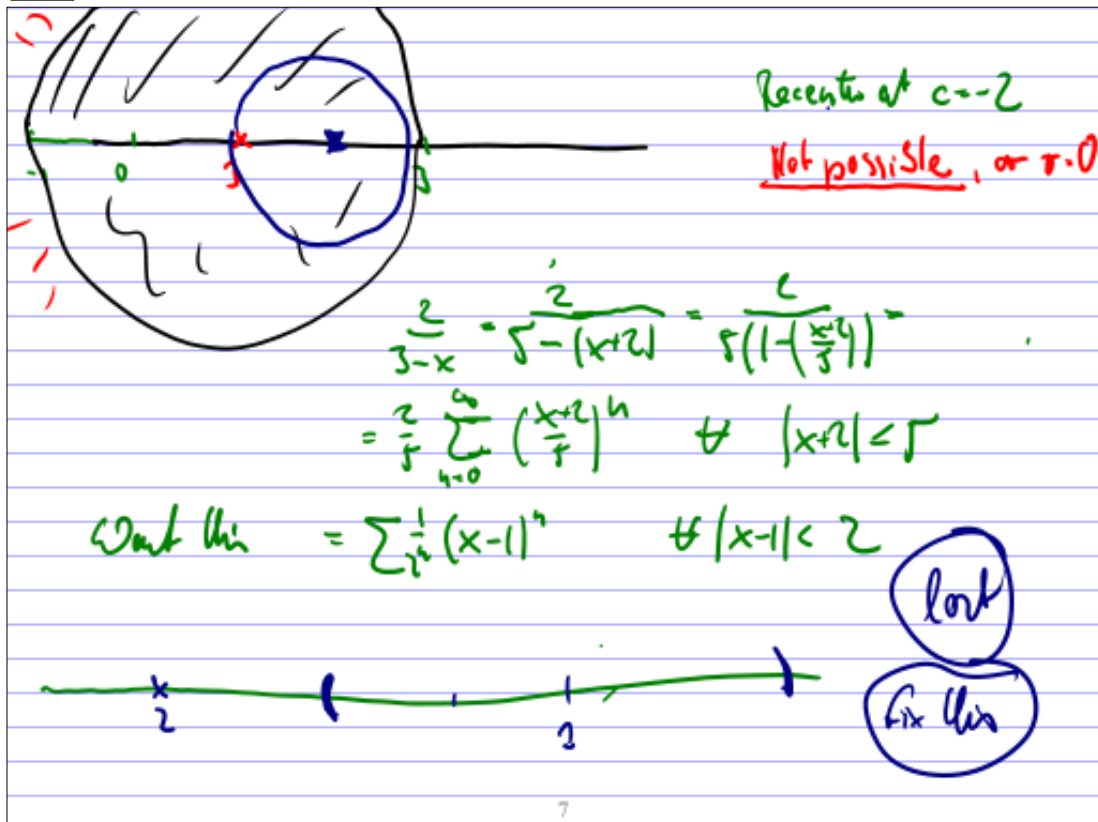 Recenter at c=-2
Not possible, or r=0
-1 0 1 3
2/(3-x) = 2/(5-(x+2)) = 2/(5(1-(x+2)/5)) =
= 2/5 ∑_{n=0}^{∞} ((x+2)/5)^n ∀ |x+2| < 5
Want this = ∑ 1/2^n (x-1)^n ∀ |x-1| < 2
lost
2 1
Fix this
7